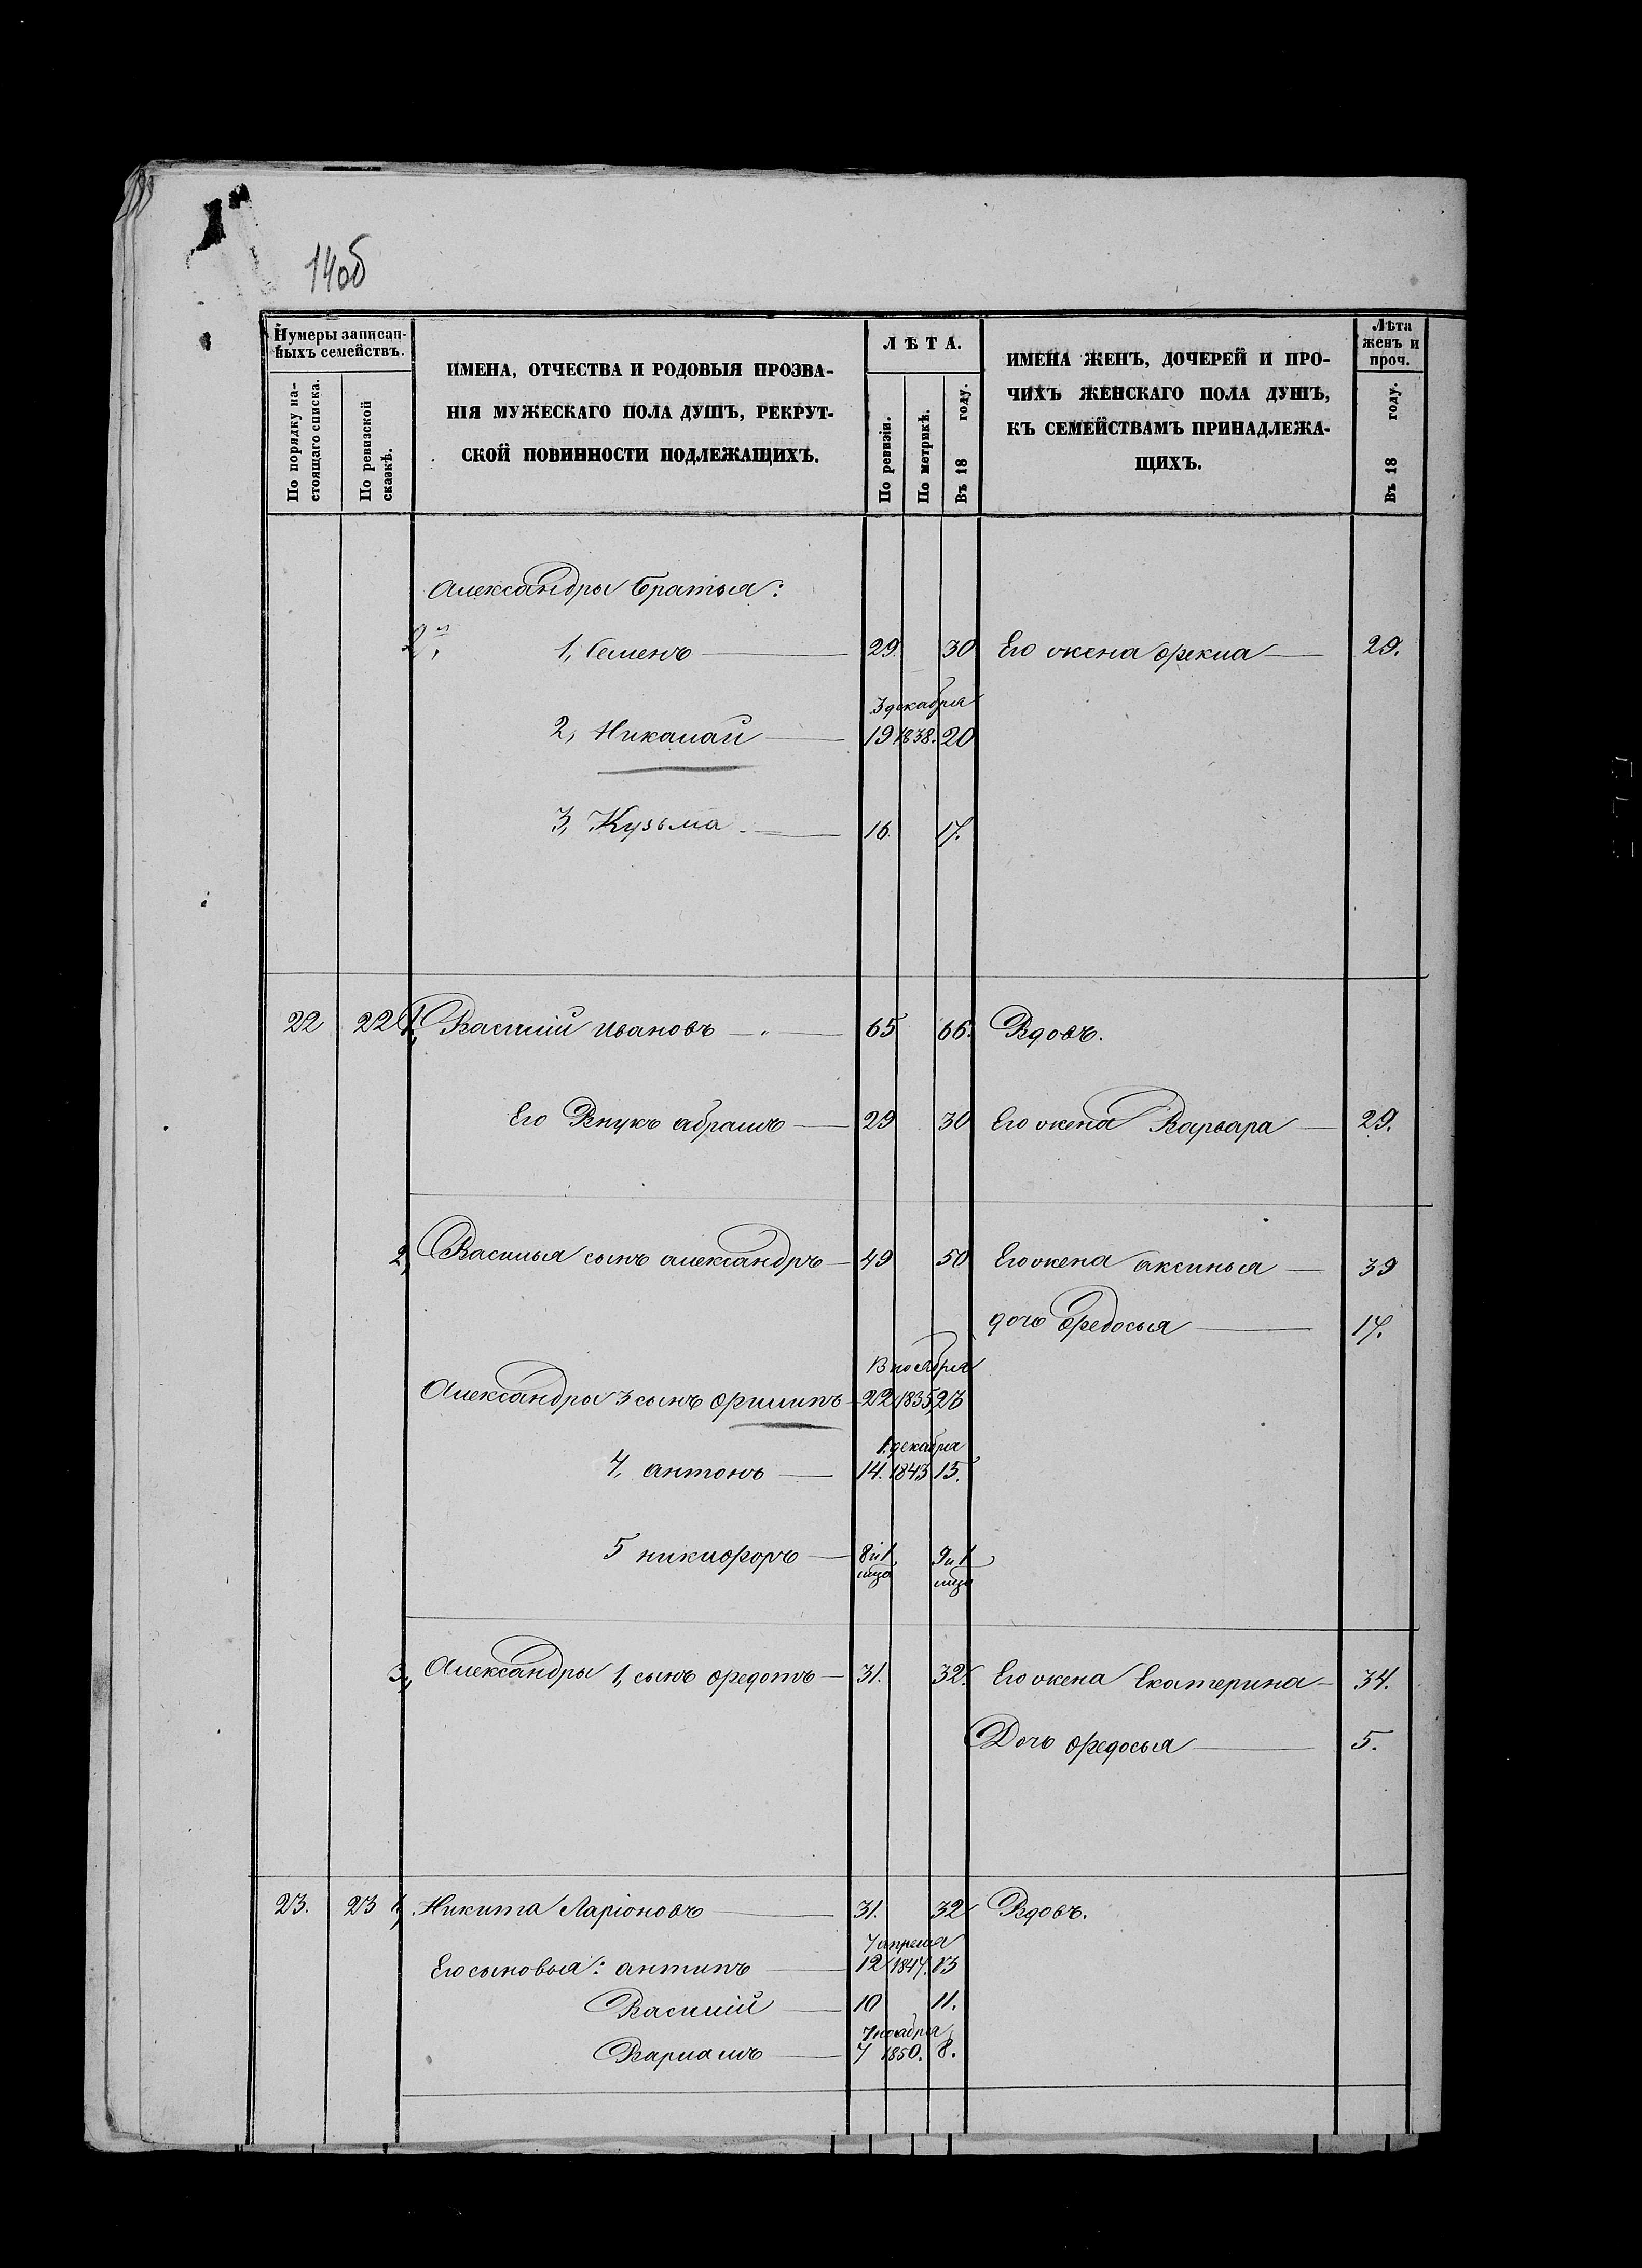 14об
Нумеры записан-
ныхъ семействъ.
По порядку на-
стоящаго списка.
По ревизской
сказкѣ.
ИМЕНА, ОТЧЕСТВА И РОДОВЫЯ ПРОЗВА-
НІЯ МУЖЕСКАГО ПОЛА ДУШЪ, РЕКРУТ-
СКОЙ ПОВИННОСТИ ПОДЛЕЖАЩИХЪ.
ЛѢТА.
По ревизіи.
По метрикѣ.
Въ 18 году.
ИМЕНА ЖЕНЪ, ДОЧЕРЕЙ И ПРО-
ЧИХЪ ЖЕНСКАГО ПОЛА ДУШЪ,
КЪ СЕМЕЙСТВАМЪ ПРИНАДЛЕЖА-
ЩИХЪ.
Лѣта
женъ и
проч.
Въ 18 году.
Александры братья:
1, Семенъ 29. 30 Его жена Фекла 29.
3 декабря
2, Никалай 19 1838. 20
3, Кузьма 16. 17.
22 22 1, Василій Ивановъ 65 66. Вдовъ.
Его Внукъ абрамъ 29 30 Его жена Варвара 29.
2, Василья сынъ александръ 49 50 Его жена аксинья 39
дочь Федосья 17.
13 ноября
Александры 3 сынъ Филипъ 22 1835 23
1. декабря
4, антонъ 14. 1843 15.
5 никифоръ 8 и 1 9 и 1
мца мца
3, Александры 1, сынъ Федотъ 31. 32. Его жена Екатерина 34.
Дочь Федосья 5.
23. 23 1, Никита Ларіоновъ 31. 32 Вдовъ.
7 апреля
Его сыновья: антипъ 12 1847. 13
Василій 10 11.
7 ноября
Варламъ 7 1850. 8.